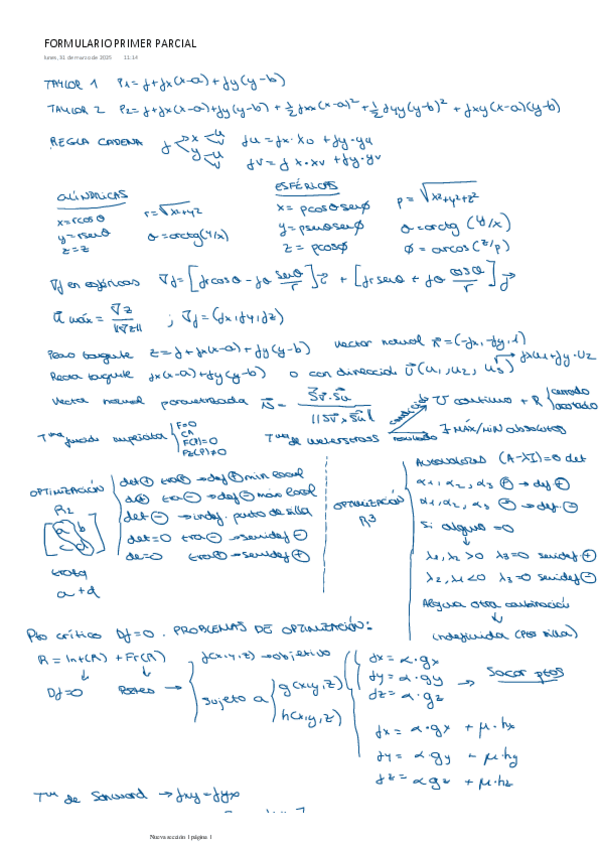 FORMULARIO PRIMER PARCIAL
lunes, 31 de marzo de 2025 11:14
TAYLOR 1 P1=f+fx(x-a)+fy(y-b)
TAYLOR 2 P2=f+fx(x-a)+fy(y-b)+½fxx(x-a)²+½fyy(y-b)²+fxy(x-a)(y-b)
REGLA CADENA f x y u v u v fu=fx·xu+fy·yu
fv=fx·xv+fy·yv
CILÍNDRICAS
x=rcosθ r=√x²+y²
y=rsenθ θ=arctg(y/x)
z=z
ESFÉRICAS
x=ρcosθsenϕ ρ=√x²+y²+z²
y=ρsenθsenϕ θ=arctg(y/x)
z=ρcosϕ ϕ=arcos(z/ρ)
∇f en esféricas ∇f=[frcosθ-fθ senθ/r]i + [frsenθ+fθ cosθ/r]j
ū máx=∇z/||∇z|| ; ∇f=(fx,fy,fz)
Plano tangente z=f+fx(x-a)+fy(y-b) vector normal n=(-fx,-fy,1)
Recta tangente fx(x-a)+fy(y-b) o con dirección ū(u1,u2,u3) → fxu1+fy·u2
Vector normal parametrizada n=Sv·Su/||Sv·Su||
Tma función implícita F=0 C1 F(P)=0 Fz(P)≠0
Tma de Weierstrass U continuo + R cerrado acotado
∃ MÁX/MIN absolutos
OPTIMIZACIÓN
R2
a b
c d
traza
a+d
det⊕ tra⊕→def⊕ min local
det⊕ tra⊖→def⊖ max local
det⊖→indef. punto de silla
det=0 tra⊖→semidef⊖
de=0 tra⊕→semidef⊕
OPTIMIZACIÓN
R3
AUTOVALORES (A-λI)=0 det
α1,α2,α3 ⊕→def⊕
α1,α2,α3 ⊖→def⊖
Si alguno=0
λ1,λ2>0 λ3=0 semidef⊕
λ2,λ1<0 λ3=0 semidef⊖
Alguna otra combinación
indefinida (Pto silla)
Pto crítico Df=0. PROBLEMAS DE OPTIMIZACIÓN:
R=Int(R)+Fr(R)
Df=0
f(x,y,z)→objetivo
sujeto a g(x,y,z)
h(x,y,z)
fx=α·gx
fy=α·gy → Sacar ptos
fz=α·gz
fx=α·gx+μ·hx
fy=α·gy-μ·hy
fz=αgz+μ·hz
Tma de Schward →fxy=fyx
Nueva sección 1 página 1